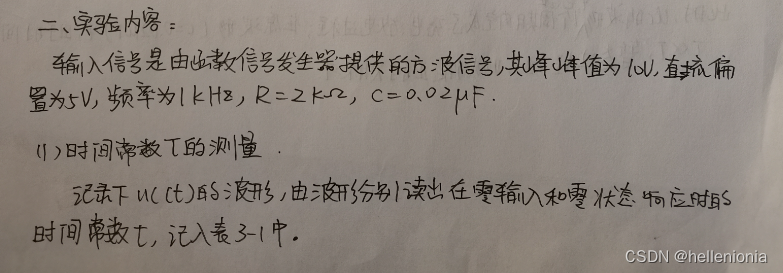 二、实验内容：
输入信号是由函数信号发生器提供的方波信号，其峰峰值为10V，直流偏
置为5V，频率为1kHz，R=2kΩ，C=0.02μF.
(1)时间常数τ的测量.
记录下uc(t)的波形，由波形分别读出在零输入和零状态响应时的
时间常数τ，记入表3-1中。
CSDN @hellenionia